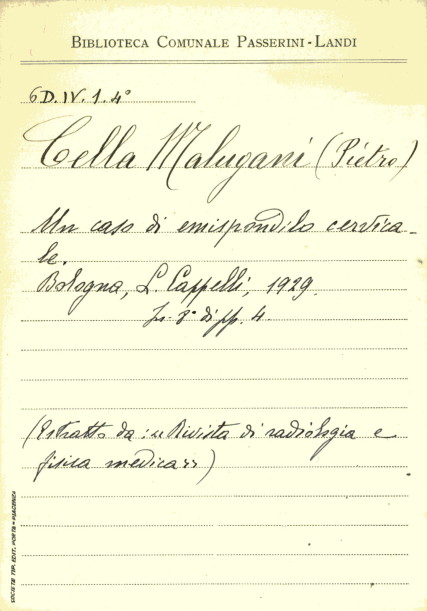 BIBLIOTECA COMUNALE PASSERINI-LANDI
6D.IV.1.4°
Cella Malugani (Pietro)
Un caso di emispondilo cervica-
le.
Bologna, L. Cappelli, 1929.
In-8° di pp. 4.
(Estratto da: "Rivista di radiologia e
fisica medica")
SOCIETÀ TIP. EDIT. PORTA - PIACENZA